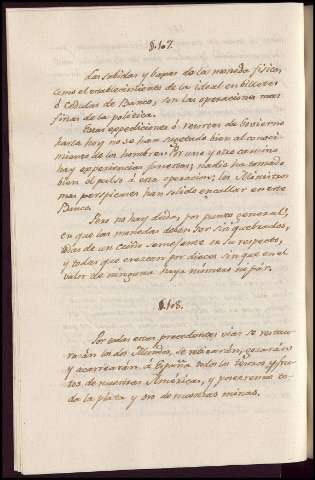 §.107.
Las subidas y bajas de la moneda fisica,
como el establecimiento de la ideal en billetes
ò cedulas de Banco, son las operaciones mas
finas de la politica.
Estos expedientes ò recursos de Govierno
hasta hoy no se han sugetado bien al conoci-
miento de los hombres. Por uno y otro camino
hay experiencias funestas; nadie ha tomado
bien el pulso á esta operacion; los Ministros
mas perspicaces han solido encallar en este
Banco.
Pero no hay duda, por punto general,
en que las monedas deben ser sin quebrados,
todas de un cuño semejante en su respeto,
y todas que crezcan por dieces sin que en el
valor de ninguna haya número impar.
§.108.
Por todas estas precedentes vias se restau-
rarán los dos Mundos, se enlazarán, gozarán
y acarrearán á España todos los bienes y fru-
tos de nuestras Américas, y poseeremos to-
da la plata y oro de nuestras minas.